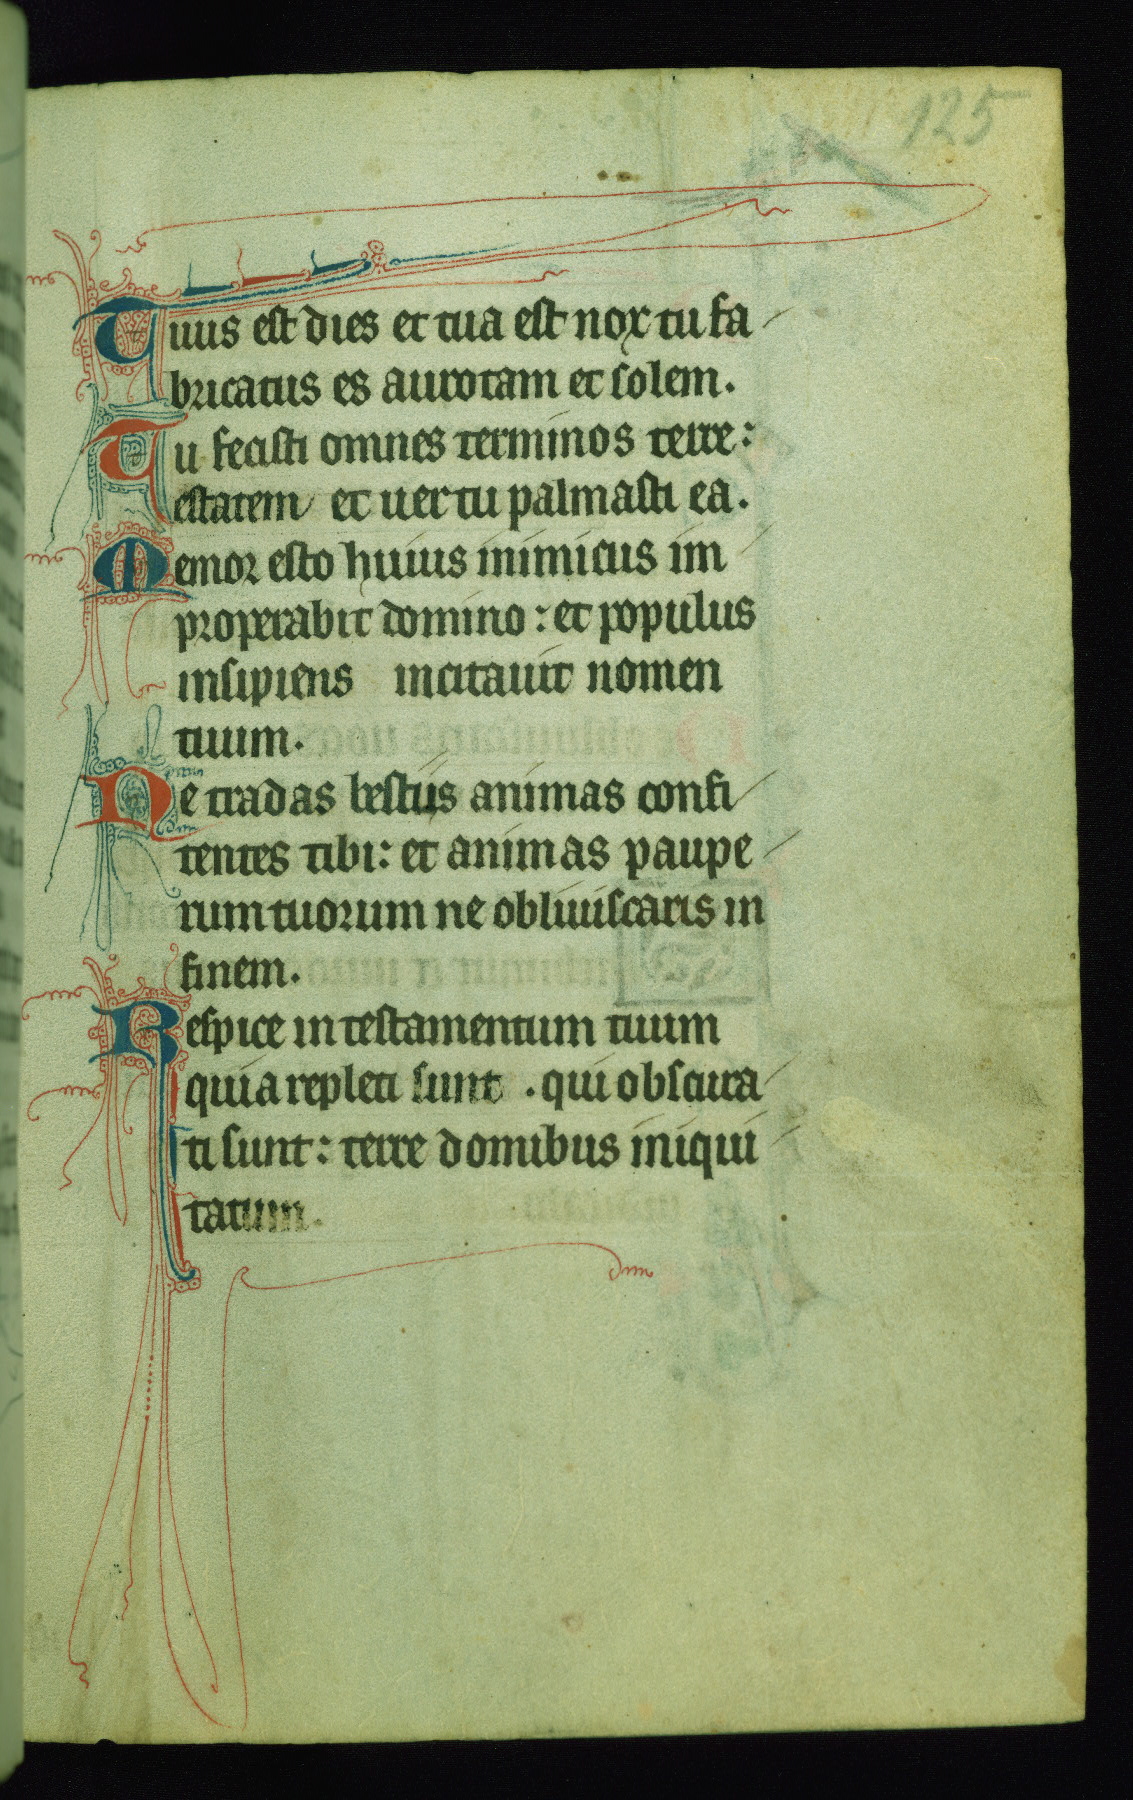 125
Tuus est dies et tua est nox tu fa
bricatus es auroram et solem.
Tu fecisti omnes terminos terre:
estatem et uer tu palmasti ea.
Memor esto huius inimicus im
properabit domino: et populus
insipiens incitauit nomen
tuum.
Ne tradas bestiis animas confi
tentes tibi: et animas paupe
rum tuorum ne obliuiscaris in
finem.
Respice in testamentum tuum
quia repleti sunt . qui obscura
ti sunt: terre domibus iniqui
tatum.